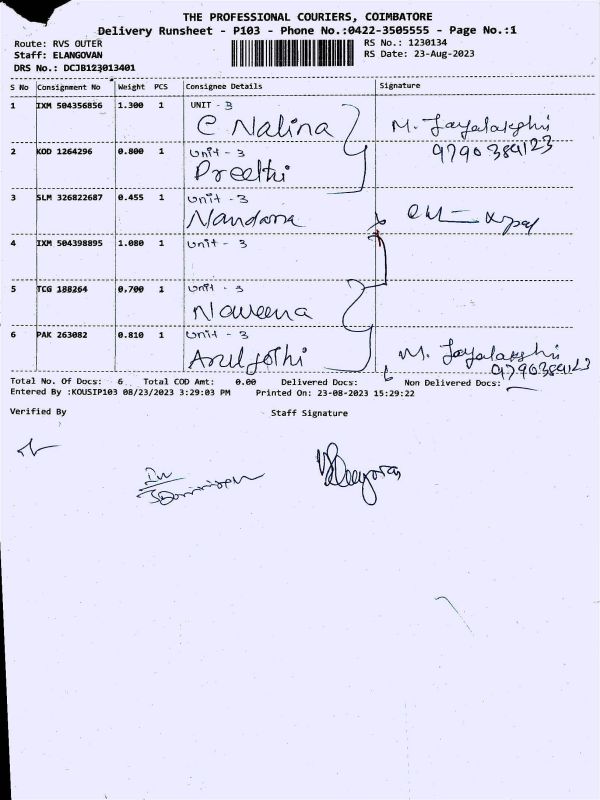 THE PROFESSIONAL COURIERS, COIMBATORE
Delivery Runsheet - P103 - Phone No.:0422-3505555 - Page No.:1
Route: RVS OUTER
RS No.: 1230134
Staff: ELANGOVAN
RS Date: 23-Aug-2023
DRS No.: DCJB123013401
S No Consignment No Weight PCS Consignee Details Signature
1 IXM 504356856 1.300 1 UNIT - 3
C Nalina M. Jayalakshi
9790389123
2 KOD 1264296 0.800 1 Unit - 3
Preethi
3 SLM 326822687 0.455 1 Unit - 3
Nandana
4 IXM 504398895 1.080 1 Unit - 3
5 TCG 188264 0.700 1 Unit - 3
Naveena
6 PAK 263082 0.810 1 Unit - 3
Aruljothi M. Jayalakshi
9790389123
Total No. Of Docs: 6 Total COD Amt: 0.00 Delivered Docs: 6 Non Delivered Docs:
Entered By :KOUSIP103 08/23/2023 3:29:03 PM Printed On: 23-08-2023 15:29:22
Verified By Staff Signature